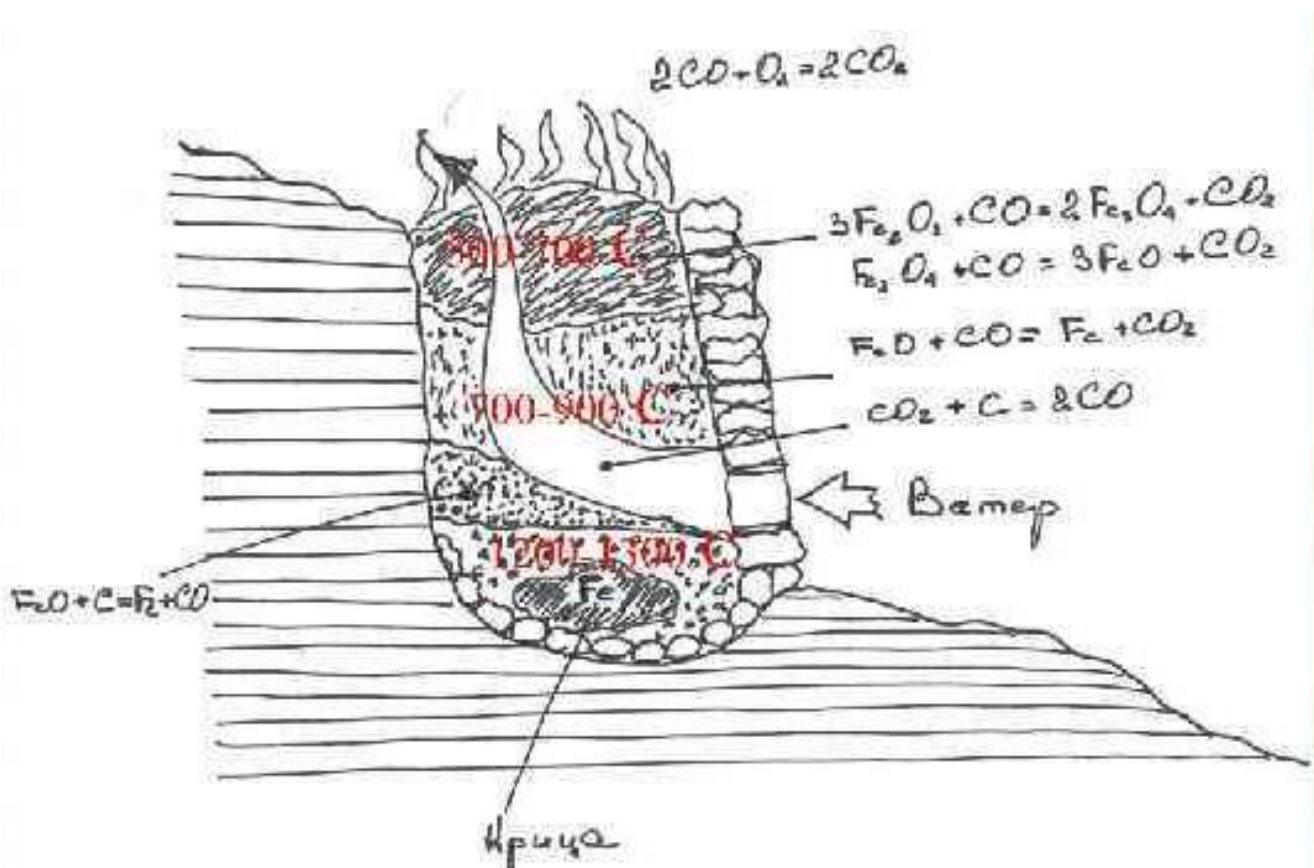 2CO + O₂ = 2CO₂
3Fe₂O₃ + CO = 2Fe₃O₄ + CO₂
Fe₃O₄ + CO = 3FeO + CO₂
FeO + CO = Fe + CO₂
700-900 C
CO₂ + C = 2CO
Ватер
1200-1300 C
Fe
FeO + C = Fe + CO
Крица